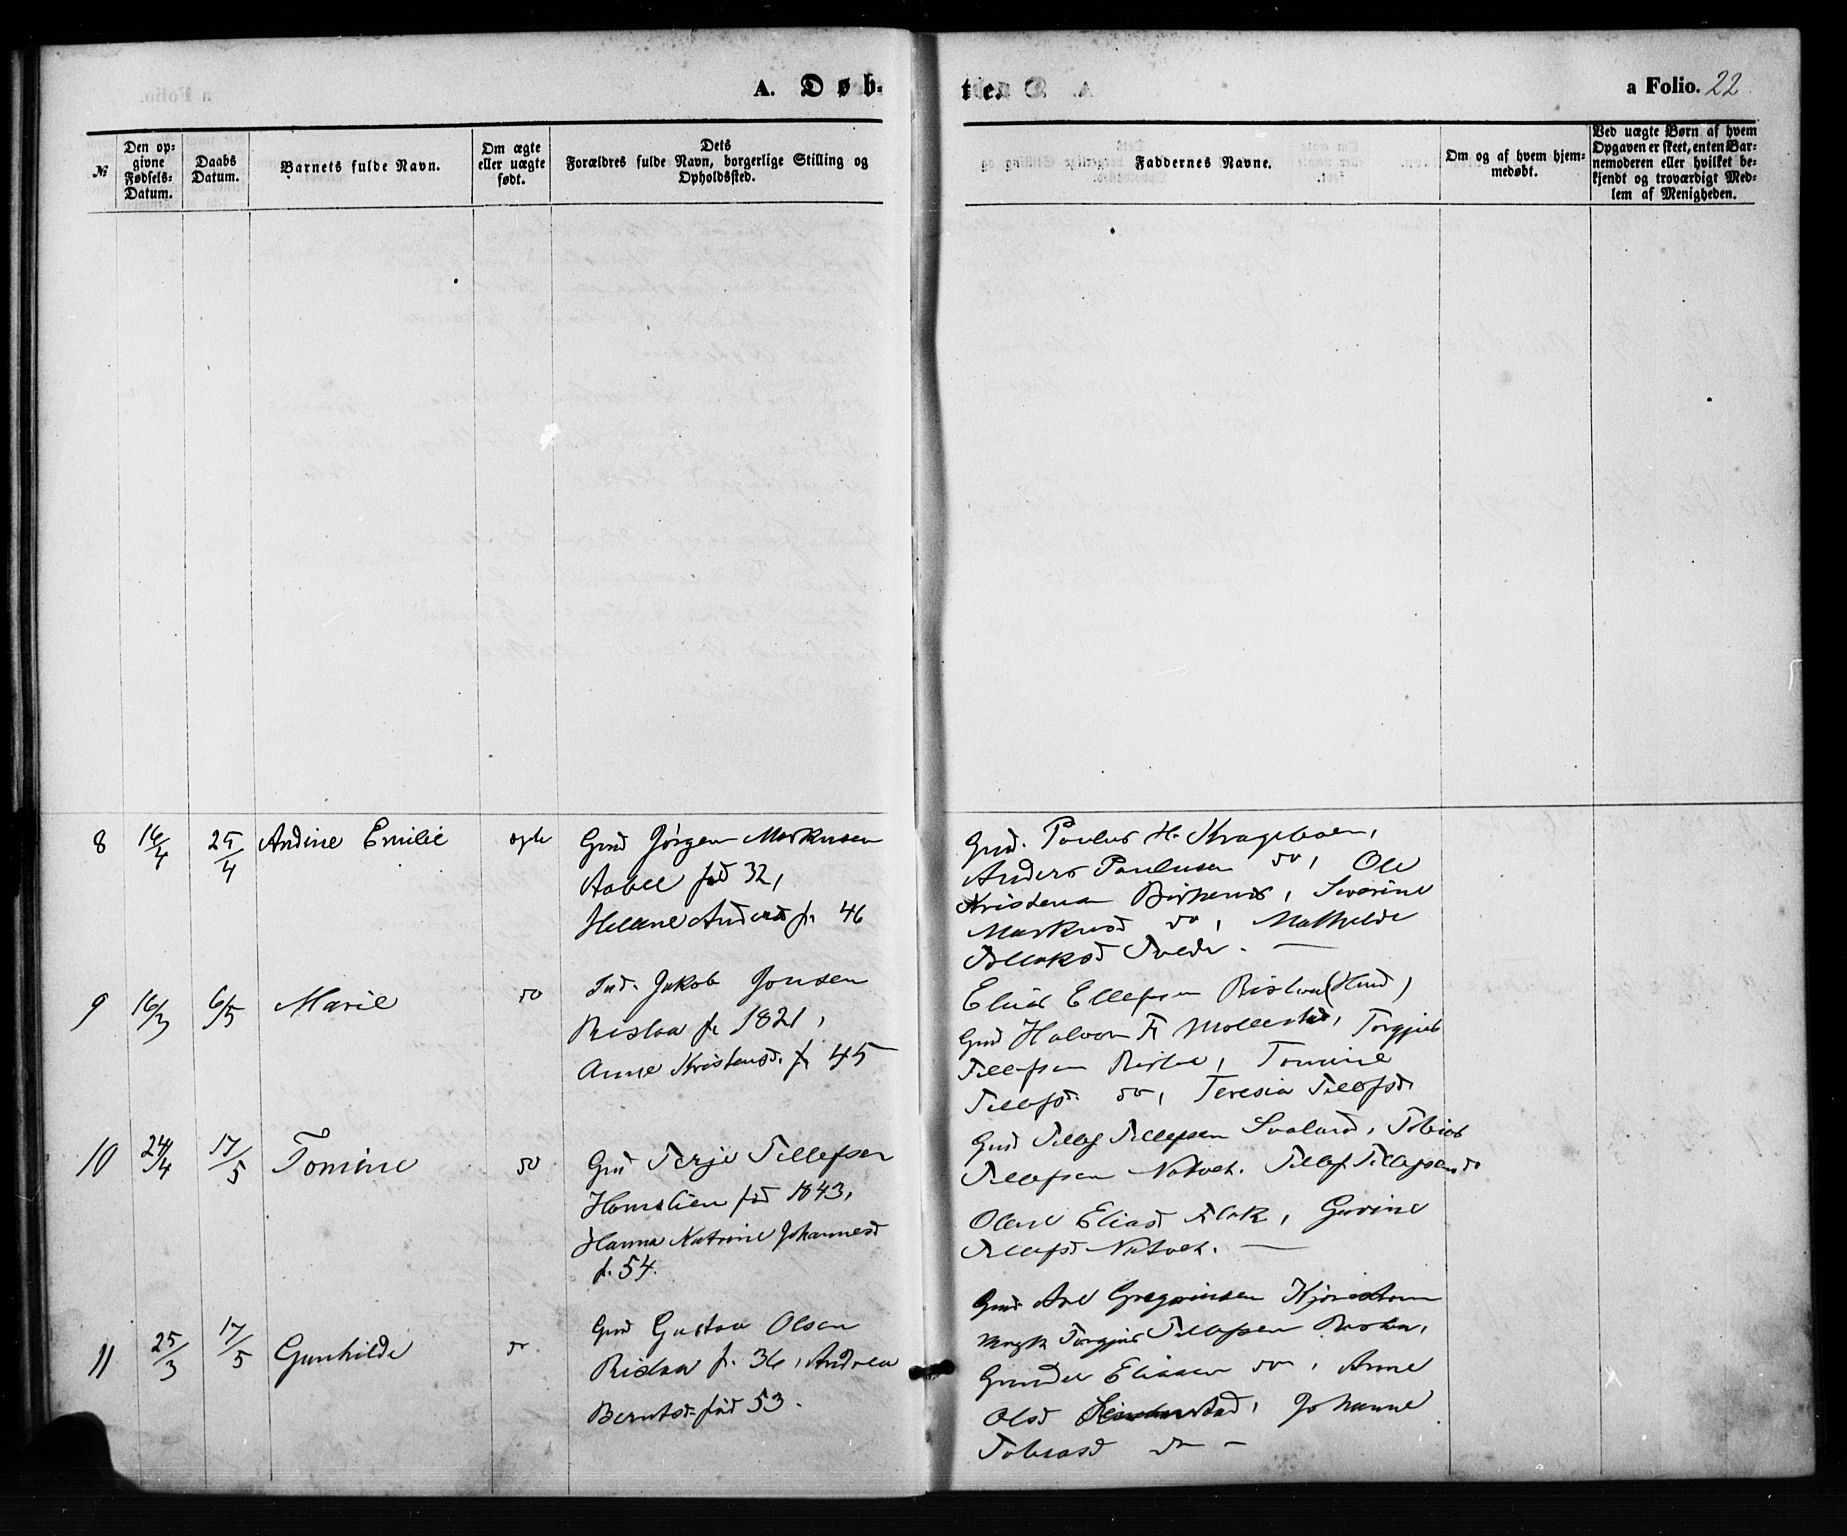 A. Døb-
te.
a Folio. 22
№
Den op-
givne
Fødsels-
Datum.
Daabs
Datum.
Barnets fulde Navn.
Om ægte
eller uægte
født.
Dets
Forældres fulde Navn, borgerlige Stilling og
Opholdssted.
Faddernes Navne.
Om og af hvem hjem-
medøbt.
Ved uægte Børn af hvem
Opgaven er skeet, enten Bar-
nemoderen eller hvilket be-
kjendt og troværdigt Med-
lem af Menigheden.
8 16/4 25/4 Andine Emilie ægte
Gmd Jørgen Markusen
Aabel fød 32,
Helene Andersd f. 46
Gmd. Paulus H. Krageboen,
Anders Paulusen do, Ole
Kristensen Birkenes, Severine
Markusd do, Mathilde
Tvede. —
9 16/3 6/5 Marie do
Ind. Jakob Jonsen
Rislaa f. 1821,
Anne Kristensd. f. 45
Elias Ellefsen Rislaa (Hmd)
Gmd Halvor F. Mollestad, Torgjus
Tellefsen Rislaa, Tomine
Tellefsd. do, Teresia Tellefsd.
10 24/4 17/5 Tomine do
Gmd Terje Tellefsen
Homslien fød 1843,
Hanna Katrine Johannesd
f. 54.
Gmd Tellef Tellefsen Svaland, Tobias
Tellefsen Natvet. Tellef Tellefsen do
Olene Eliasd Flak, Gurine
Tellefsd Natvet. —
11 25/3 17/5 Gunhilde do
Gmd Gustav Olsen
Rislaa f. 36, Andrea
Berntsd. fød 53.
Gmd Are Gregoriusen
Ungk Torgjus Tellefsen Rislaa,
Gunder Eliasen do, Anne
Olsd Johanne
Tobiasd do —